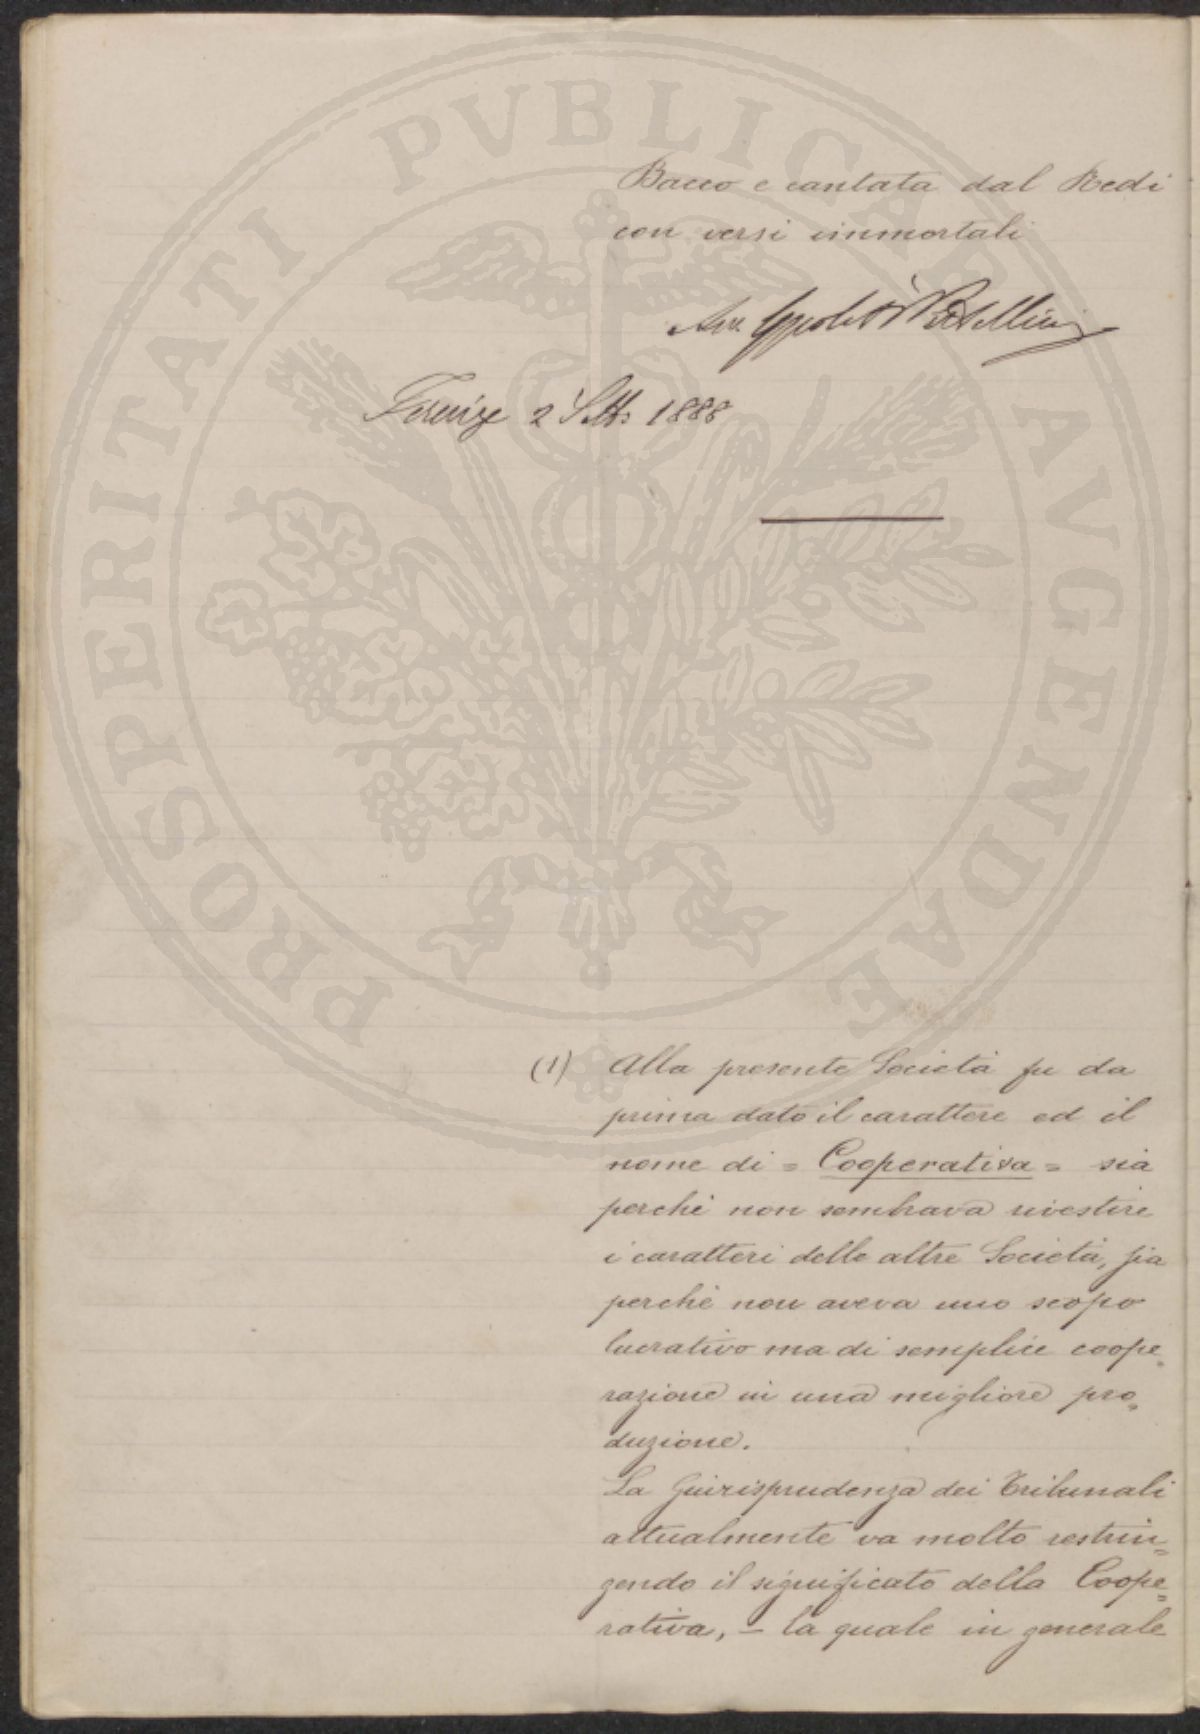 Bacco e cantata dal Redi
con versi immortali
Avv. Ippolito Pestellini
Firenze 2 Sett. 1888
(1) Alla presente Società fu da
prima dato il carattere ed il
nome di = Cooperativa = sia
perchè non sembrava rivestire
i caratteri delle altre Società, sia
perchè non aveva uno scopo
lucrativo ma di semplice coope=
razione in una migliore pro=
duzione.
La Giurisprudenza dei Tribunali
attualmente va molto restrin=
gendo il significato della Coope=
rativa, – la quale in generale
PROSPERITATI PVBLICAE AVGENDAE